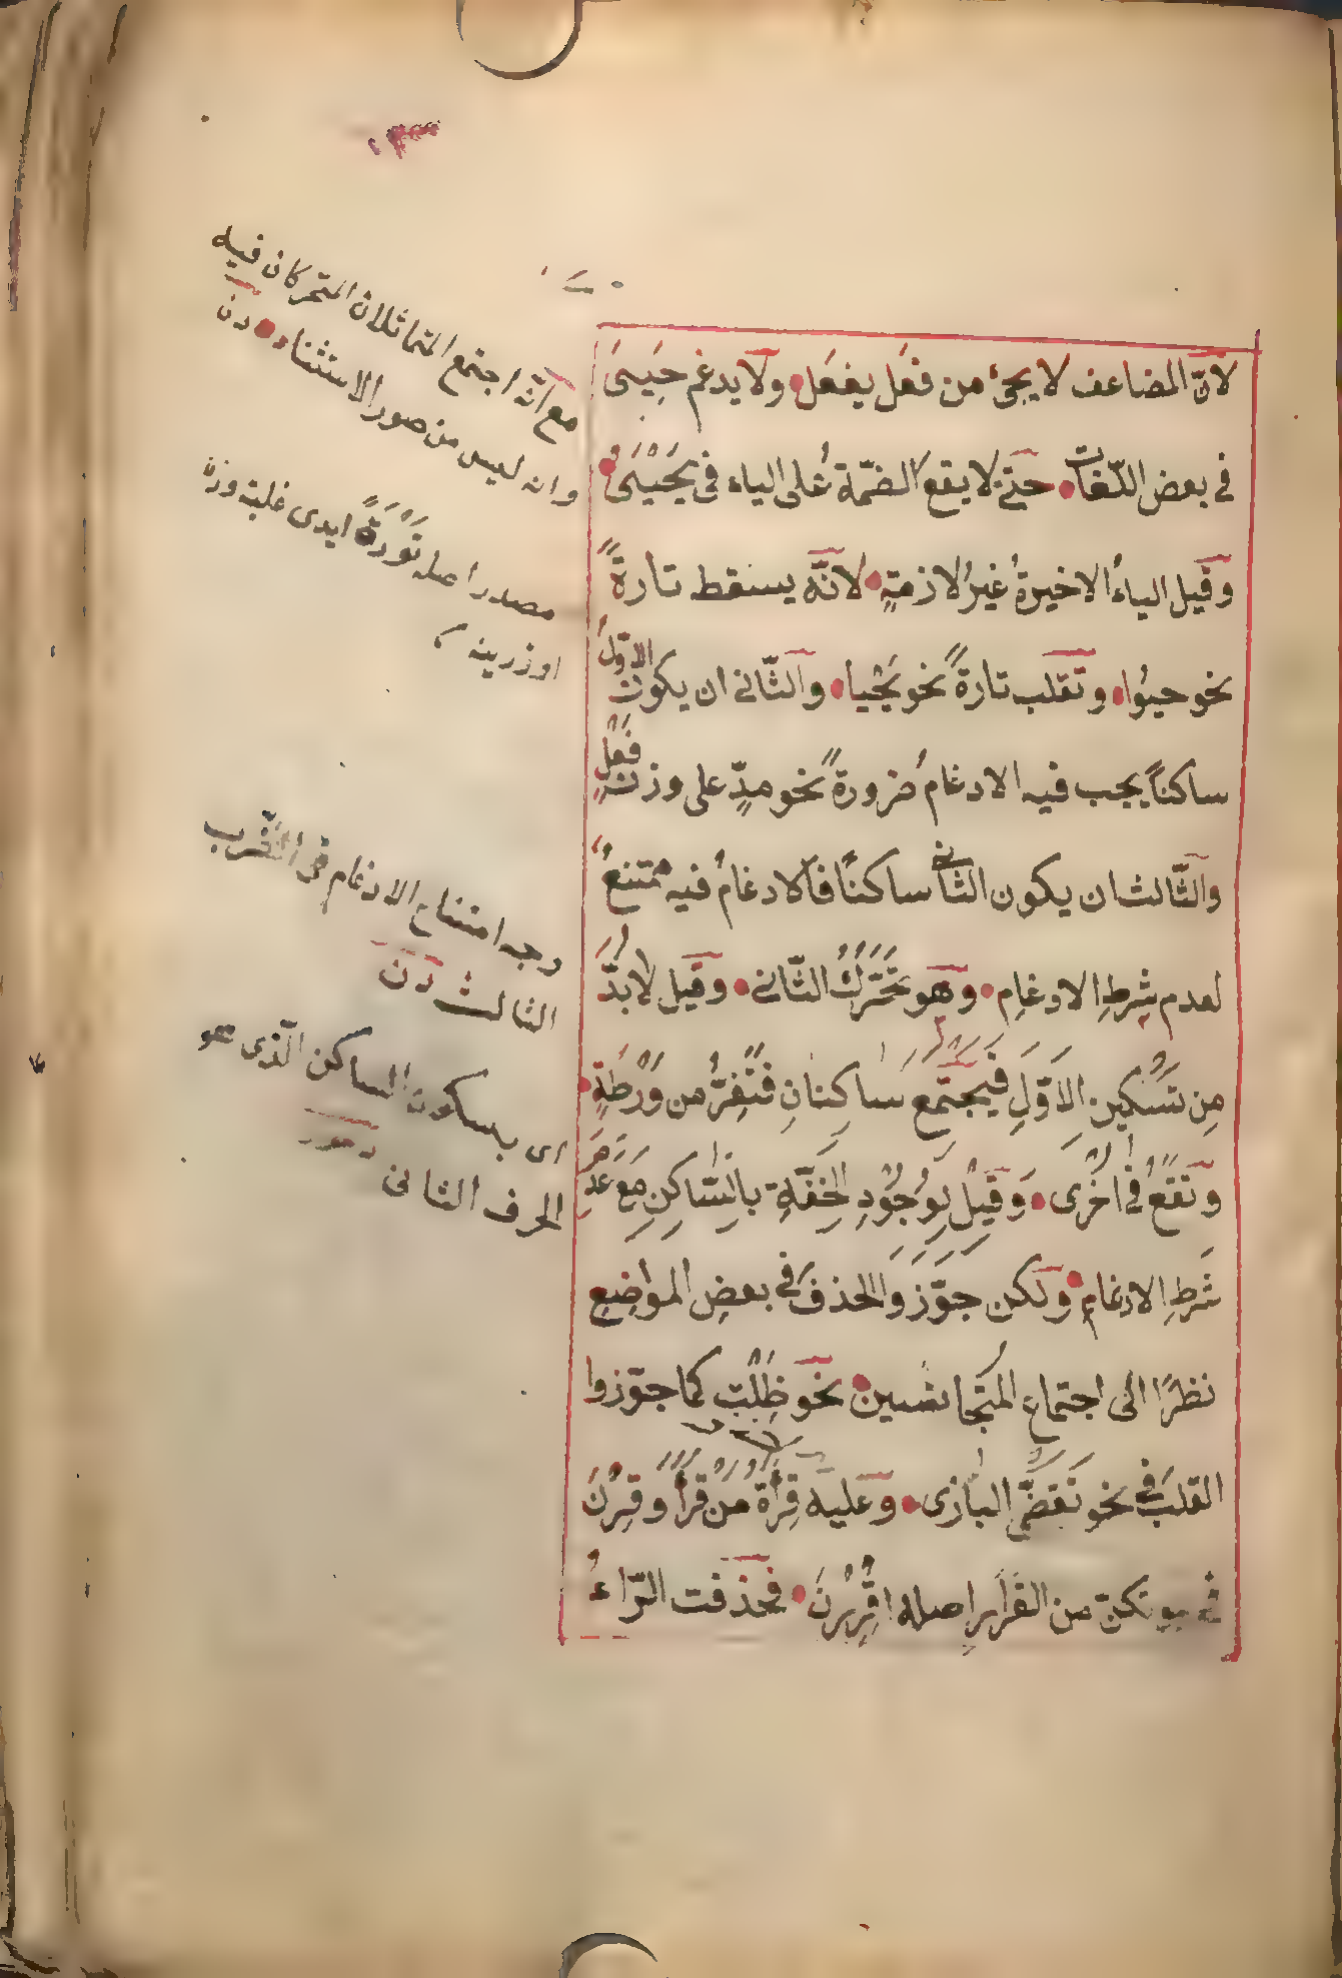 لانّ المضاعف لا يجئ من فعَل يفعَل ولا يدغم حَيِىَ
فى بعض اللّغات حتى لا يقع الضمّة على الياء فى يَحْيَىُ
وقيل الياءُ الاخيرةُ غيرُ لازمةٍ لانّه يسقط تارةً
نحو حيُوا وتقلب تارةً نحو يَحْيا والثّانى ان يكون الاوّلُ
ساكناً يجب فيه الادغامُ ضرورةً نحو مدٍّ على وزن فَعْلٍ
والثّالث ان يكون الثانى ساكنًا فالادغامُ فيه ممتنعٌ
لعدم شرطِ الادغامِ وهو تَحَرُّكُ الثّانى وقيل لا بدَّ
مِن تَسْكينِ الاَوّلِ فَيَجْتَمع ساكِنانِ فَتَفِرُّ من وَرْطَةٍ
وتَقَعُ فى اُخْرى وَقيلَ لِوُجُودِ الخِفّةِ بالسّاكنِ مَعَ عَدمِ
شَرطِ الادغامِ ولكن جوّزوا الحذفَ فى بعضِ المواضِعِ
نظرًا الى اجتماع المتجانسين نحو ظَلْت كما جوّزوا
القلبَ فى نحو تَقَضِّى البازى وعليه قرأة مَنْ قرأ وقِرْنَ
فى بيوتكنّ من القَرارِ اصله اقْرِرْنَ فحذفت الرّاءُ
مع انّه اجتمع المتماثلان المتحركان فيه
وانه ليس من صور الاستثناء
مصدر اصله تَوْرَةً ايدى
وجه امتناع الادغام فى الضرب
الثالث
اى بسكون الساكن الّذى هو
الحرف الثانى